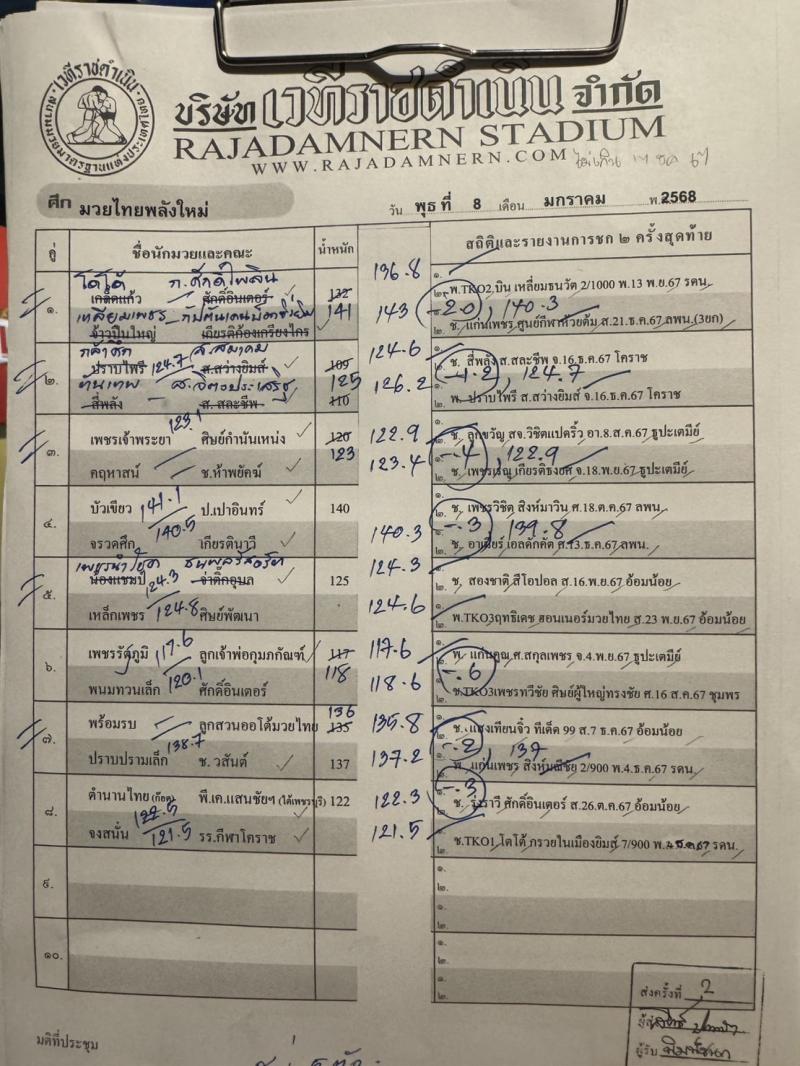 เวทีราชดำเนิน
บริษัท เวทีราชดำเนิน จำกัด
RAJADAMNERN STADIUM
WWW.RAJADAMNERN.COM
ศึก มวยไทยพลังใหม่
วัน พุธที่ 8 เดือน มกราคม พ.2568
คู่ ชื่อนักมวยและคณะ น้ำหนัก สถิติและรายงานการชก ๒ ครั้งสุดท้าย
โตโต้ ก.ศักดิ์ไพลิน 136.8
๑. เกล็ดแก้ว ศักดิ์อินเตอร์ 132 พ.TKO2 บิน เหลี่ยมธนวัต 2/1000 พ.13 พ.ย.67 รดน.
เหลี่ยมเพชร 141 143 -2.0, 140.3
จ้าวปืนใหญ่ เกียรติก้องเกรียงไกร ช. แก่นเพชร ศูนย์กีฬาห้วยต้ม ส.21.ธ.ค.67 ลพน.(3ยก)
กล้าศึก ส.สมาคม 124.6
๒. ปราบไพรี 124.7 ส.สว่างยิมส์ 109 ช. สี่พลัง ส.สละชีพ จ.16 ธ.ค.67 โคราช
ทันเทพ ส.จิตประเสริฐ 125 126.2 -1.2, 124.7
สี่พลัง ส. สละชีพ 110 พ. ปราบไพรี ส.สว่างยิมส์ จ.16 ธ.ค.67 โคราช
๓. เพชรเจ้าพระยา 123.1 ศิษย์กำนันเหน่ง 120 122.9 ช. ลูกขวัญ สจ.วิชิตแปดริ้ว อา.8 ส.ค.67 ธูปะเตมีย์
คฤหาสน์ ช.ห้าพยัคฆ์ 123 123.4 -.4, 122.9
ช. เพชรเจญ เกียรติธงยศ จ.18 พ.ย.67 ธูปะเตมีย์
๔. บัวเขียว 141.1 ป.เปาอินทร์ 140 ช. เพชรวิชิต สิงห์มาวิน ศ.18 ต.ค.67 ลพน.
จรวดศึก 140.5 เกียรตินาวี 140.3 -.3, 139.8
ช. อาเดียร์ เอลดักคัต ศ.13 ธ.ค.67 ลพน.
๕. น้องแชมป์ 124.3 จ่าติกอุบล 125 124.3 ช. สองชาติ สีโอปอล ส.16 พ.ย.67 อ้อมน้อย
เหล็กเพชร 124.8 ศิษย์พัฒนา 124.6 พ.TKO3 ฤทธิเดช ฮอนเนอร์มวยไทย ส.23 พ.ย.67 อ้อมน้อย
๖. เพชรรัฐภูมิ 117.6 ลูกเจ้าพ่อกุมภกัณฑ์ 117 117.6 พ. แก่นคูณ ศ.สกุลเพชร จ.4 พ.ย.67 ธูปะเตมีย์
พนมทวนเล็ก 120.1 ศักดิ์อินเตอร์ 118 118.6 -.6
ช.TKO3 เพชรทวีชัย ศิษย์ผู้ใหญ่ทรงชัย ศ.16 ส.ค.67 ชุมพร
๗. พร้อมรบ ลูกสวนออโต้มวยไทย 136 135 135.8 ช. แสงเทียนจิ๋ว ทีเด็ด 99 ส.7 ธ.ค.67 อ้อมน้อย
ปราบปรามเล็ก 138.7 ช. วสันต์ 137 137.2 -.2, 137
พ. แก่นเพชร สิงห์มณีชัย 2/900 พ.4 ธ.ค.67 รดน.
๘. ตำนานไทย (ก๊อต) 122.5 พี.เค.แสนชัยฯ (ได้เพชรบุรี) 122 122.3 -.3
ช. รุ่งราวี ศักดิ์อินเตอร์ ส.26 ต.ค.67 อ้อมน้อย
จงสนั่น 121.5 รร.กีฬาโคราช 121.5 ช.TKO1 โตโต้ กรวยในเมืองยิมส์ 7/900 พ.4 ธ.ค.67 รดน.
๙.
๑๐.
ส่งครั้งที่ 2
ผู้ส่ง
ผู้รับ
มติที่ประชุม